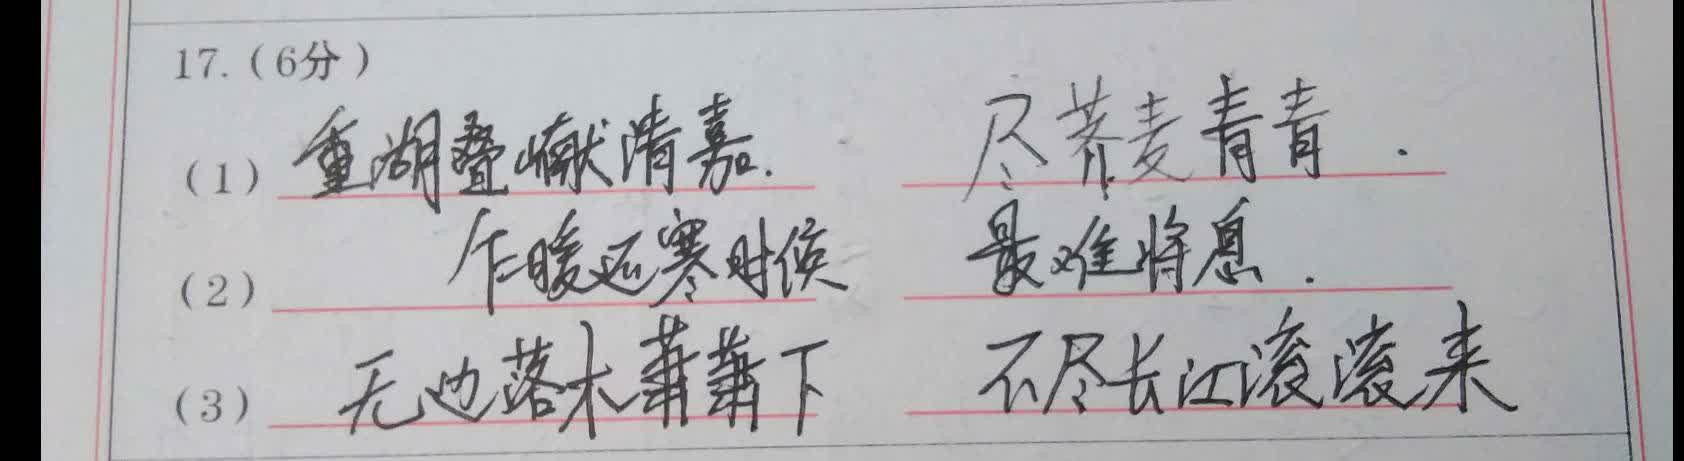 17.(6分)
(1) 重湖叠巘清嘉. 尽荠麦青青.
(2) 乍暖还寒时候 最难将息.
(3) 无边落木萧萧下 不尽长江滚滚来